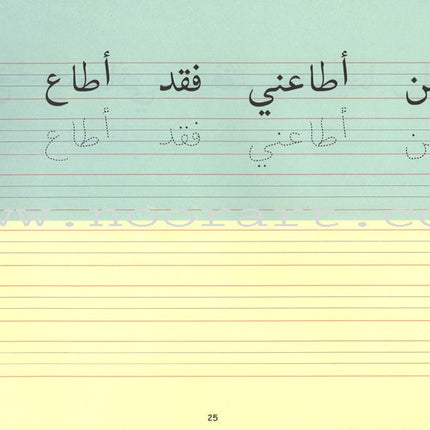 أطاعني فقد أطاع
أطاعني فقد أطاع
www.noorart.com
25